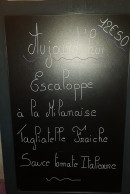 12€50
Aujourd'hui
Escaloppe
à la Milanaise
Tagliatelle Fraiche
Sauce tomate Italienne